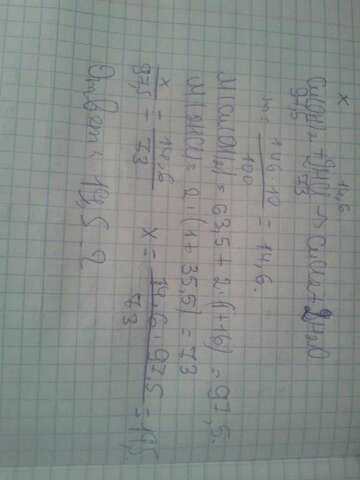 x 14,6
Cu(OH)₂ + 2HCl → CuCl₂ + 2H₂O
97,5 73
m = 146·10 / 100 = 14,6.
M(Cu(OH)₂) = 63,5 + 2·(1+16) = 97,5.
M(2HCl) = 2·(1+35,5) = 73
x / 97,5 = 14,6 / 73 x = 14,6·97,5 / 73 = 19,5.
Ответ: 19,5 г